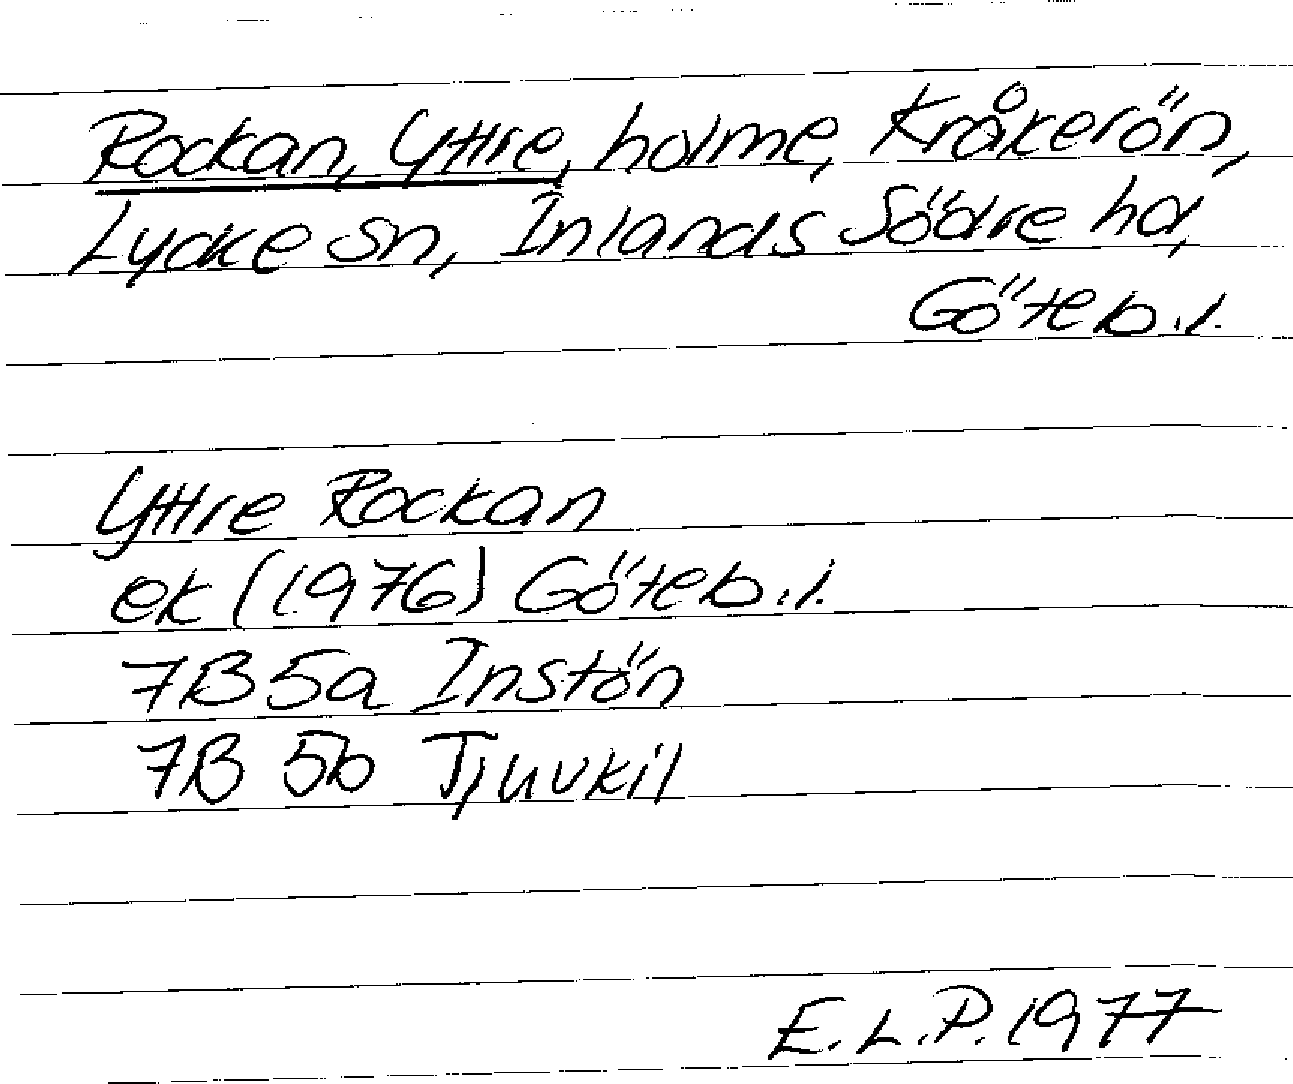 Rockan, Yttre, holme, Kråkerön,
Lycke sn, Inlands Södre hd,
Göteb.l.
Yttre Rockan
ek (1976) Göteb.l.
7B 5a Instön
7B 5b Tjuvkil
E.L.P. 1977